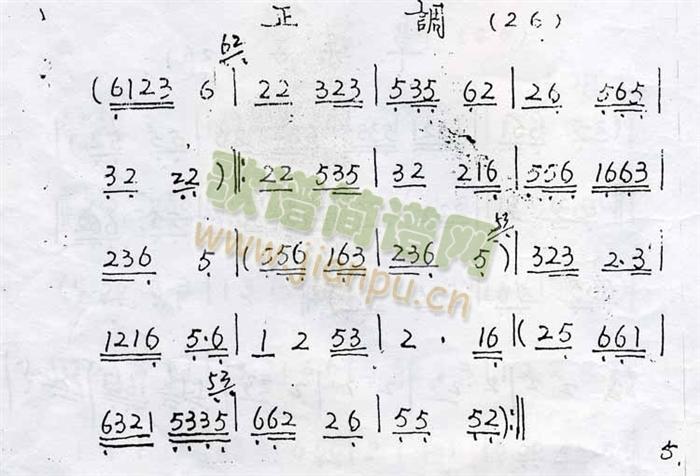 正 調 (26)
62
(6123 6 | 22 323 | 535 62 | 26 565 |
32 22) ‖: 22 535 | 32 216 | 556 1663 |
53
236 5 ‖ (556 163 | 236 5) | 323 2.3 |
1216 5.6 | 1 2 53 | 2 . 16 ‖ (25 661 |
53
6321 5335 | 662 26 | 55 52) :‖
5.
歌谱简谱网
www.jianpu.cn